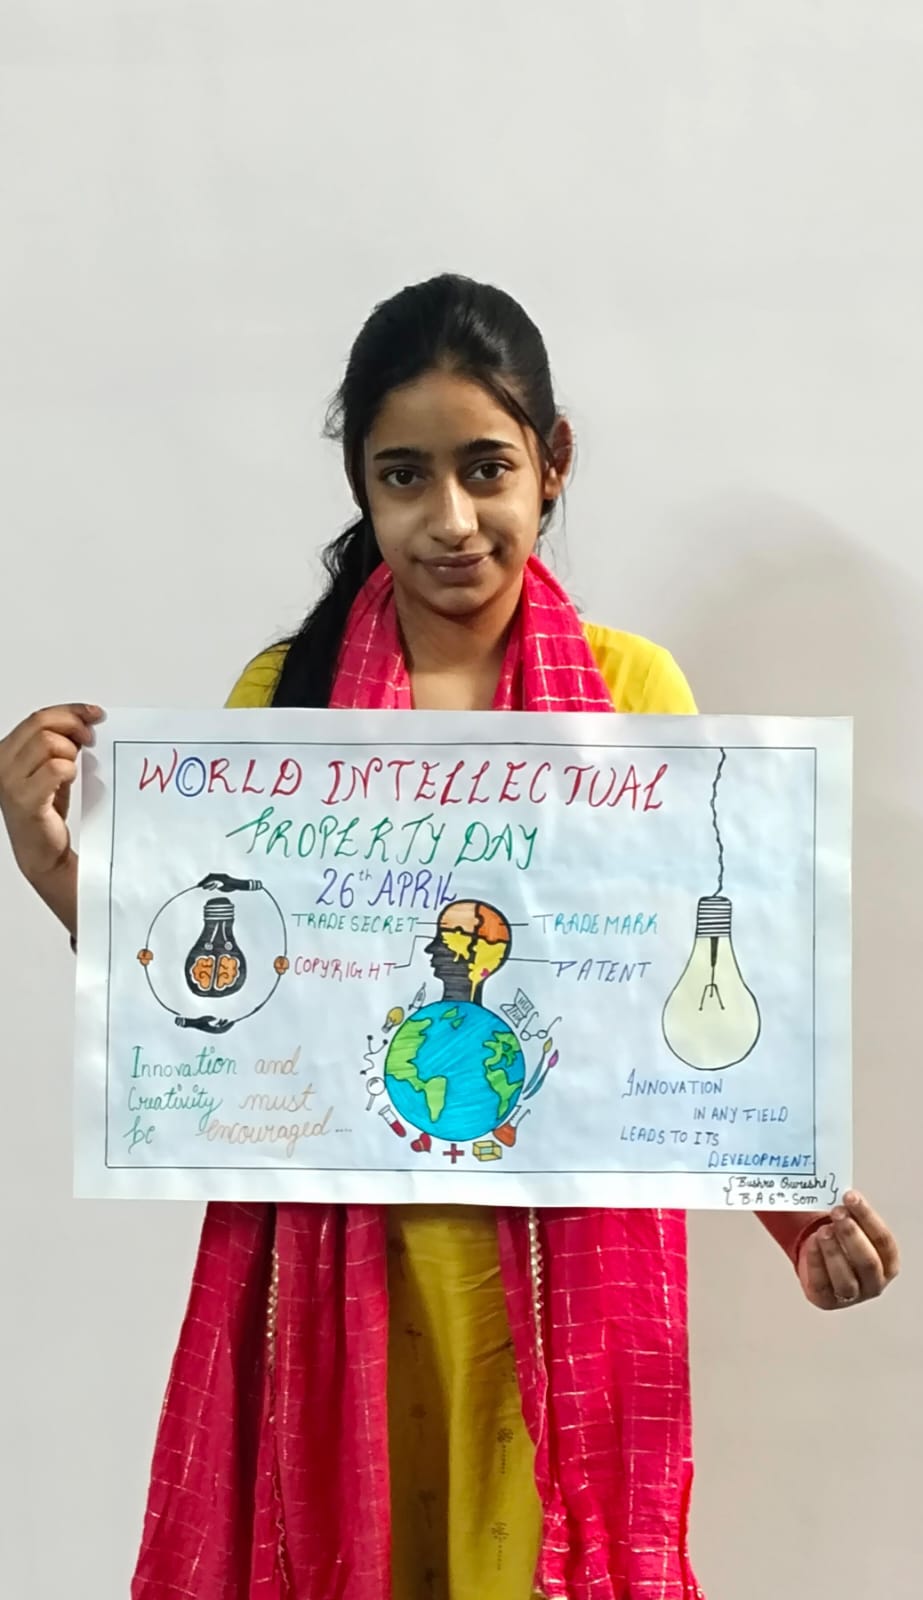 W©RLD INTELLECTUAL
PROPERTY DAY
26th APRIL
TRADE SECRET
TRADEMARK
COPYRIGHT
PATENT
Innovation and
Creativity must
be encouraged....
INNOVATION
IN ANY FIELD
LEADS TO ITS
DEVELOPMENT.
{Bushra Qureshi}
B.A 6th-Sem